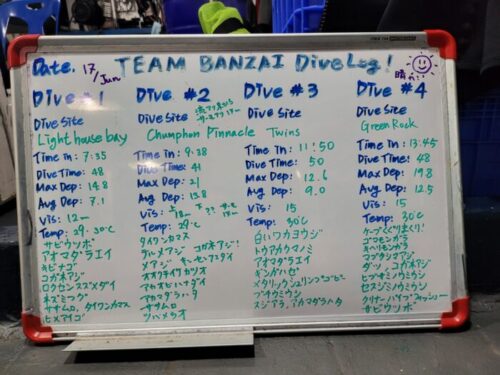 Date. 17/Jun TEAM BANZAI DiveLog!
Dive #1
Dive Site
Lighthouse bay
Time in: 7:35
Dive Time: 48
Max Dep: 14.8
Ave Dep: 7.1
Vis: 12m
Temp: 29-30℃
サビウツボ
アオマダラエイ
キビナゴ
コガネアジ
ロクセンスズメダイ
ネズミフグ
ササムロ、タイワンカマス
ヒメアイゴ
Dive #2
Dive Site
Chumphon Pinnacle
Time in: 9:38
Dive Time: 41
Max Dep: 21
Ave Dep: 13.8
Vis: 18m
Temp: 29℃
タイワンカマス
グルメアジ コガネアジ!
メアジ
アカオビハナダイ
アカマダラハタ
ササムロ
ツバメウオ
Dive #3
Dive Site
Twins
Time in: 11:50
Dive Time: 50
Max Dep: 12.6
Ave Dep: 9.0
Vis: 15
Temp: 30℃
白いワカヨウジ
トウアカクマノミ
アオマダラエイ
ギンガハゼ
メタリックシュリンプゴビー
ブチウミウシ
スジアラ、アカマダラハタ
Dive #4
Dive Site
Green Rock
Time in: 13:45
Dive Time: 48
Max Dep: 19.8
Ave Dep: 12.5
Vis: 15
Temp: 30℃
ケーブくぐりまくり!
ゴマモンガラ
キヘリモンガラ
コブラシアジ
ダツ コガネアジ
ヒブサミノウミウシ
セスジミノウミウシ
クリーナーパイプフィッシュ
サビウツボ